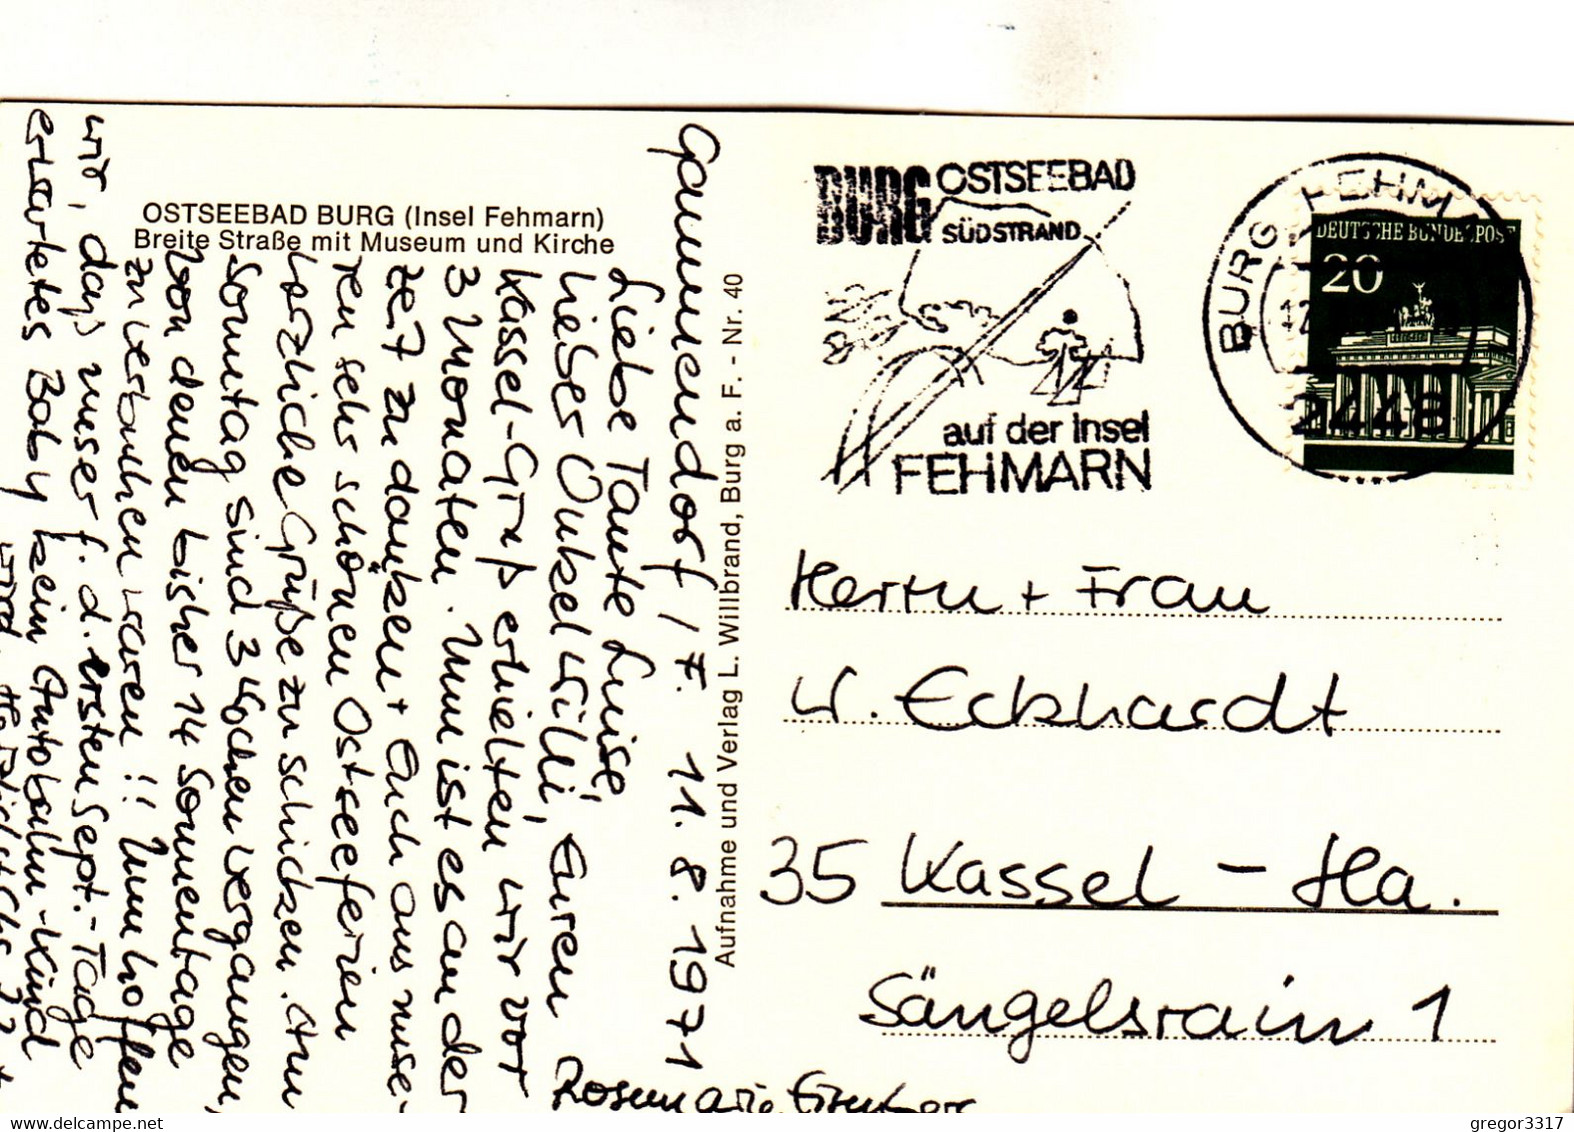 OSTSEEBAD BURG (Insel Fehmarn)
Breite Straße mit Museum und Kirche
Gammendorf / F. 11. 8. 1971
Liebe Tante Luise,
lieber Onkel Willi, Euren
Kassel-Gruß erhielten wir vor
3 Monaten. Nun ist es an der
Zeit zu danken + Euch aus unse-
ren sehr schönen Ostseeferien
herzliche Grüße zu schicken. Am
Sonntag sind 3 Wochen vergangen,
von denen bisher 14 Sonnentage
zu verbuchen waren!! Nun hoffen
wir, daß unser f. d. ersten Sept.-Tage
erwartetes Baby kein Autobahn-Kind
wird. Herzlichst
Rosemarie
Aufnahme und Verlag L. Willbrand, Burg a. F. - Nr. 40
BURG OSTSEEBAD
SÜDSTRAND
auf der Insel
FEHMARN
BURG FEHM
2448
DEUTSCHE BUNDESPOST
20
Herrn + Frau
W. Eckhardt
35 Kassel - Ha.
Sängelsrain 1
gregor3317